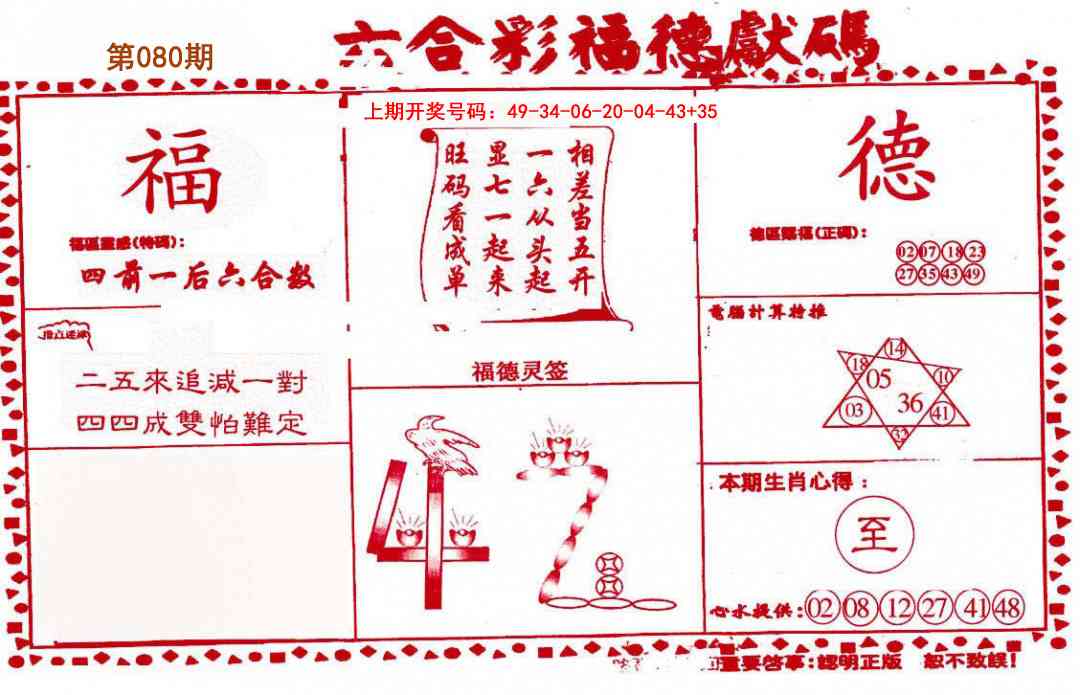 第080期
六合彩福德獻碼
上期开奖号码：49-34-06-20-04-43+35
福
福區靈感(特碼)：
四前一后六合数
二五來追減一對
四四成雙怕難定
相差当五开
一六从头起
显七一起来
旺码看成单
福德灵签
42
德
德區賜福(正碼)：
02 07 18 23
27 35 43 49
電腦計算特推
14
18 10
05
36
03 41
32
本期生肖心得：
至
心水提供：02 08 12 27 41 48
重要啓事：認明正版 恕不致誤！